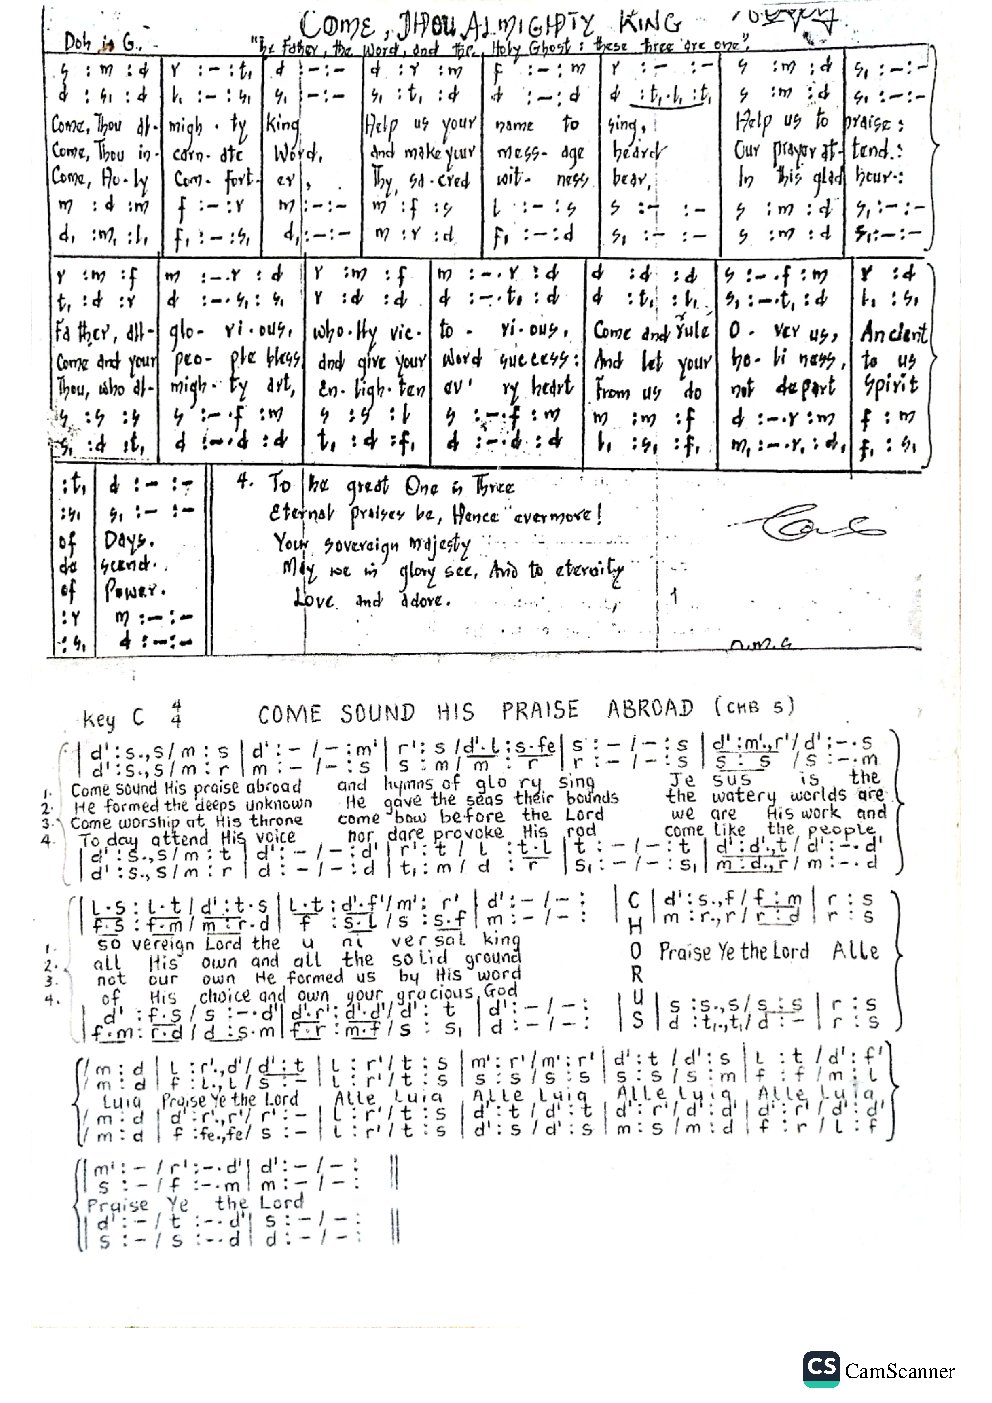 COME, THOU ALMIGHTY KING
Doh is G.
"The Father, the Word, and the Holy Ghost: these three are one".
s : m : d | r : – : t, | d : – : – | d : r : m | f : – : m | r : – : – | s : m : d | s, : – : –
d : s, : d | l, : – : s, | s, : – : – | s, : t, : d | d : – : d | d : t,. l, : t, | s : m : d | s, : – : –
Come, Thou al- migh - ty King Help us your name to sing, Help us to praise:
Come, Thou in- carn- ate Word, and make your mess- age heard Our prayer at- tend.:
Come, Ho-ly Com- fort- er, Thy, sa-cred wit- ness bear, In this glad hour-:
m : d : m | f : – : r | m : – : – | m : f : s | l : – : s | s : – : – | s : m : d | s, : – : –
d, : m, : l, | f, : – : s, | d, : – : – | m : r : d | f, : – : d | s, : – : – | s : m : d | s, : – : –
r : m : f | m : – . r : d | r : m : f | m : – . r : d | d : d : d | s : – . f : m | r : d
t, : d : r | d : – . s, : s, | r : d : d | d : – . t, : d | d : t, : l, | s, : – . t, : d | l, : s,
Father, all- glo- ri-ous, who-lly vic- to - ri-ous, Come and rule O - ver us, Ancient
Come and your peo- ple bless and give your word success: And let your ho- li ness, to us
Thou, who al- migh- ty art, En-ligh-ten ev' ry heart From us do not depart spirit
s : s : s | s : – . f : m | s : s : l | s : – . f : m | m : m : f | d : – . r : m | f : m
s, : d : t, | d : – . d : d | t, : d : f, | d : – . d : d | l, : s, : f, | m, : – . r, : d, | f, : s,
: t, | d : – : –
: s, | s, : – : –
of Days.
de scend.
of Power.
: r | m : – : –
: s, | d : – : –
4. To the great One is Three
Eternal praises be, Hence evermore!
Your sovereign majesty
May we in glory see, And to eternity
Love and adore.
key C 4/4 COME SOUND HIS PRAISE ABROAD (CHB 5)
| d' : s.,s / m : s | d' : – / – : m' | r' : s / d'. l : s. fe | s : – / – : s | d' : m'., r' / d' : – . s
d' : s.,s / m : r | m : – / – : s | s : m / m : r | s : – / – : s | s : s / s : – . m
1. Come sound His praise abroad and hymns of glo ry sing Je sus is the
2. He formed the deeps unknown He gave the seas their bounds the watery worlds are
3. Come worship at His throne come bow before the Lord we are His work and
4. To day attend His voice nor dare provoke His rod come like the people
| d' : s.,s / m : t | d' : – / – : d' | r' : t / l : t. l | t : – / – : t | d' : d'., t / d' : – . d'
| d' : s.,s / m : r | d' : – / – : d | t, : m / d : r | s, : – / – : s, | m : d., s / m : – . d
| l. s : l. t / d' : t. s | l. t : d'. f' / m' : r' | d' : – / – :
f. s : f. m / m : r. d | f : s. l / s : s. f | m : – / – :
1. so vereign Lord the u ni ver sal king
2. all His own and all the solid ground
3. not our own He formed us by His word
4. of His choice and own your gracious God
d' : f. s / s : – . d' | d'. r' : d'. d' / d' : t | d' : – / – :
f. m : r. d / d : s. m | f. r : m. f / s : s, | d : – / – :
CHORUS
d' : s., f / f : m | r : s
m : r., r / r : d | r : s
Praise Ye the Lord Alle
s : s., s / s : s | r : s
d : t,., t, / d : – | r : s
/ m : d | l : r'., d' / d' : t | l : r' / t : s | m' : r' / m' : r' | d' : t / d' : s | l : t / d' : f'
/ m : d | f : l., l / s : – | l : r' / t : s | s : s / s : s | s : s / s : m | f : f / m : l
Luia Praise Ye the Lord Alle Luia Alle Luia Alle Luia Alle Luia
/ m : d | d' : r'., r' / r' : – | l : r' / t : s | d' : t / d' : t | d' : r' / d' : d' | d' : r' / d' : d'
/ m : d | f : fe., fe / s : – | l : r' / t : s | d' : s / d' : s | m : s / m : d | f : r / l : f
| m' : – / r' : – . d' | d' : – / – : ||
s : – / f : – . m | m : – / – :
Praise Ye the Lord
| d' : – / t : – . d' | s : – / – : ||
s : – / s : – . d | d : – / – :
CS CamScanner